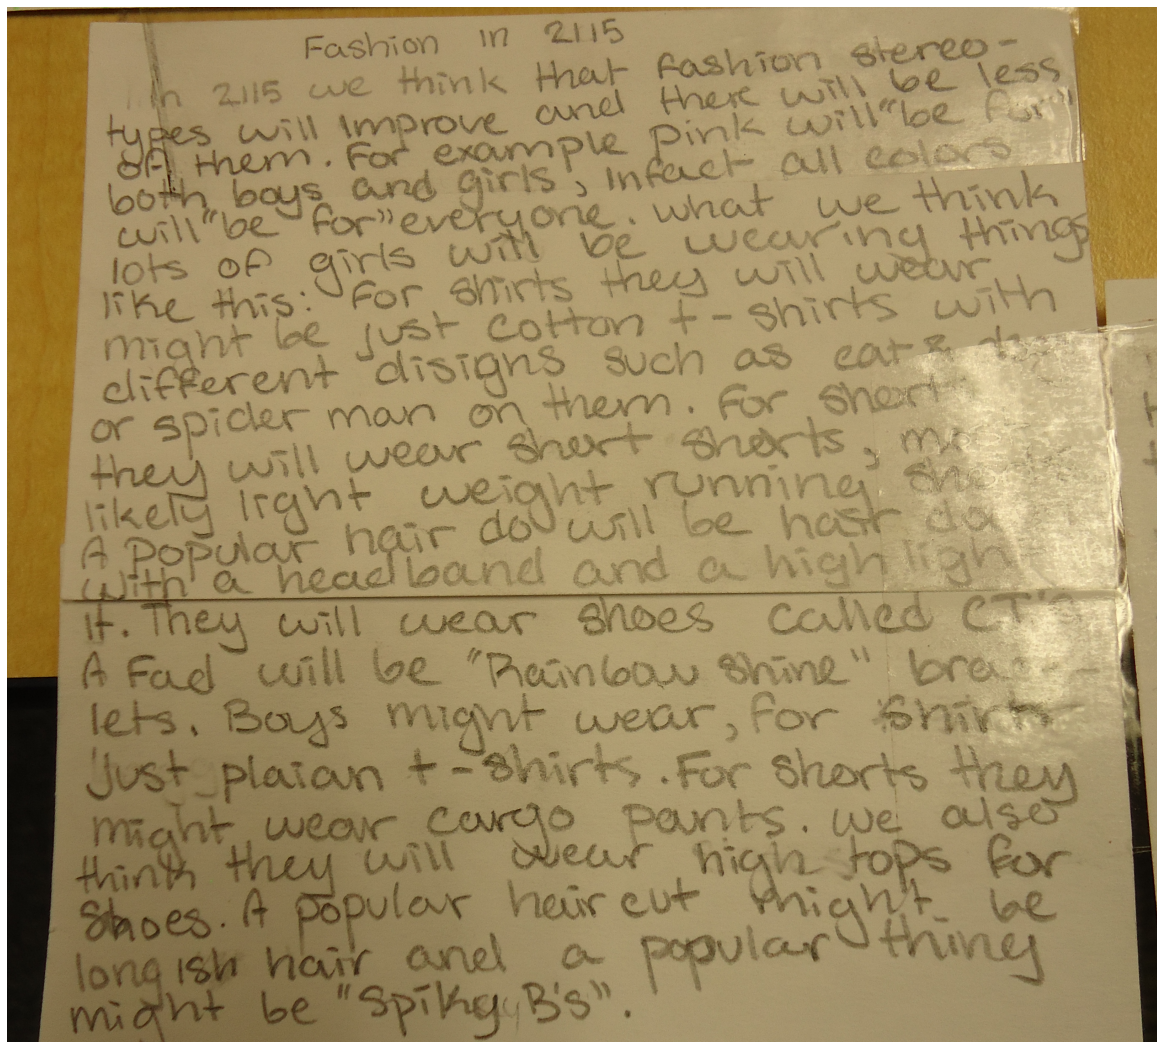 Fashion in 2115
In 2115 we think that fashion stereo-
types will improve and there will be less
of them. For example pink will "be for"
both boys and girls, infact all colors
will "be for" everyone. what we think
lots of girls will be wearing things
like this: For shirts they will wear
might be just cotton t-shirts with
different disigns such as cat &
or spider man on them. For short
they will wear short shorts,
likely light weight running
A popular hair do will be hair
with a headband and a high ligh
it. They will wear shoes called CT's
A Fad will be "Rainbow Shine" bra
lets. Boys might wear, for shirts
just plaian t-shirts. For shorts they
might wear cargo pants. we also
think they will wear high tops for
shoes. A popular hair cut might be
longish hair and a popular thing
might be "Spiky B's".